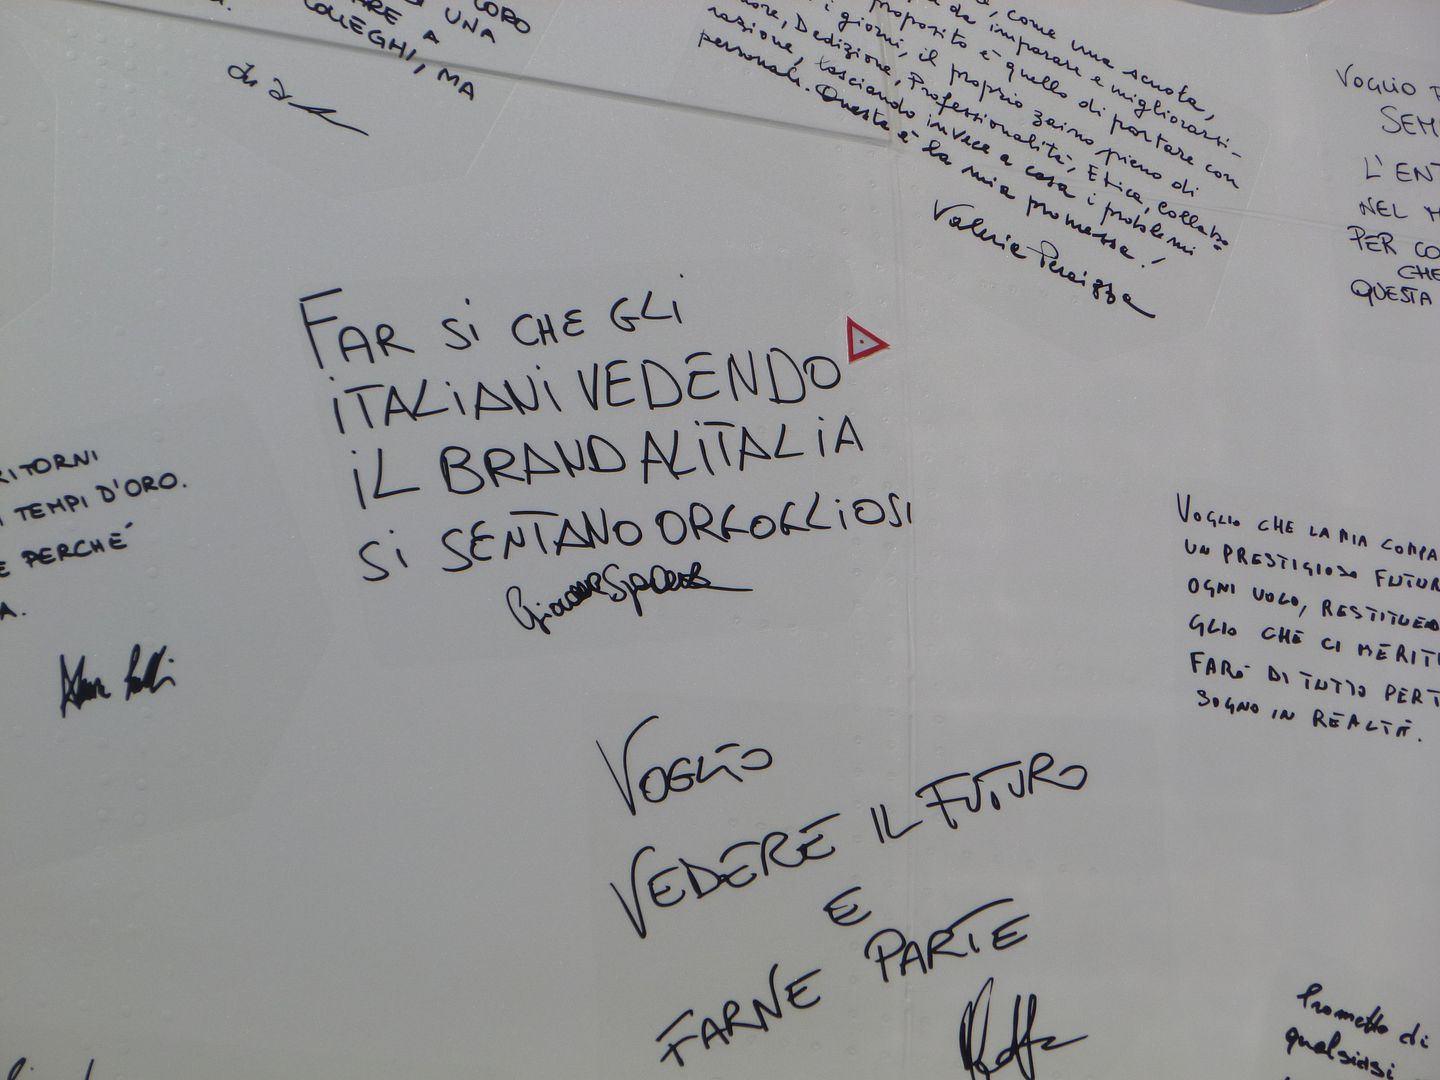 LORO
UNA
ARE A
COLLEGHI, MA
come una scuola,
da imparare e migliorarsi-
proposito è quello di portare con
i giorni, il proprio zaino pieno di
Dedizione, Professionalità, Etica, Collabo
razione, lasciando invece a casa i problemi
personali. Questa è la mia promessa!
Valeria
VOGLIO
SEM
L'ENT
NEL M
PER CO
CHE
QUESTA
FAR SI CHE GLI
ITALIANI VEDENDO
IL BRAND ALITALIA
SI SENTANO ORGOGLIOSI
RITORNI
TEMPI D'ORO.
E PERCHÉ
A.
VOGLIO CHE LA MIA COMPA
UN PRESTIGIOSO FUTUR
OGNI VOLO, RESTITUEND
GLIO CHE CI MERITI
FARÒ DI TUTTO PER T
SOGNO IN REALTÀ.
VOGLIO
VEDERE IL FUTURO
E
FARNE PARTE
Prometto di
qualsiasi